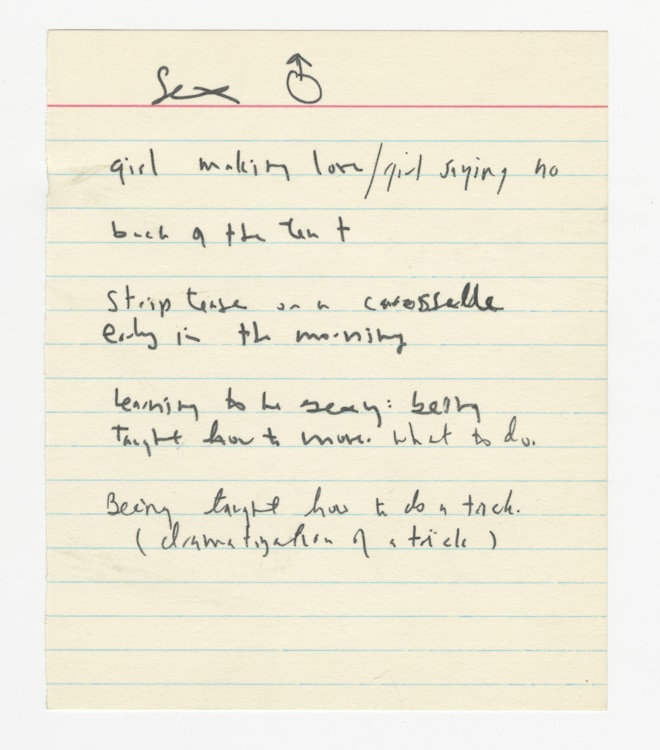 Sex ♂
girl making love/girl saying no
back of the tent
Strip tease on a
early in the morning
learning to be sexy: being
taught how to move. what to do.
Being taught how to do a trick.
(dramatization of a trick)